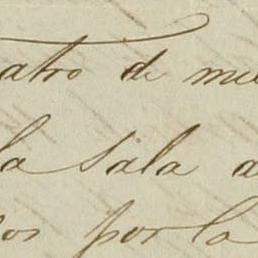 atro de mi
la sala a
os por la